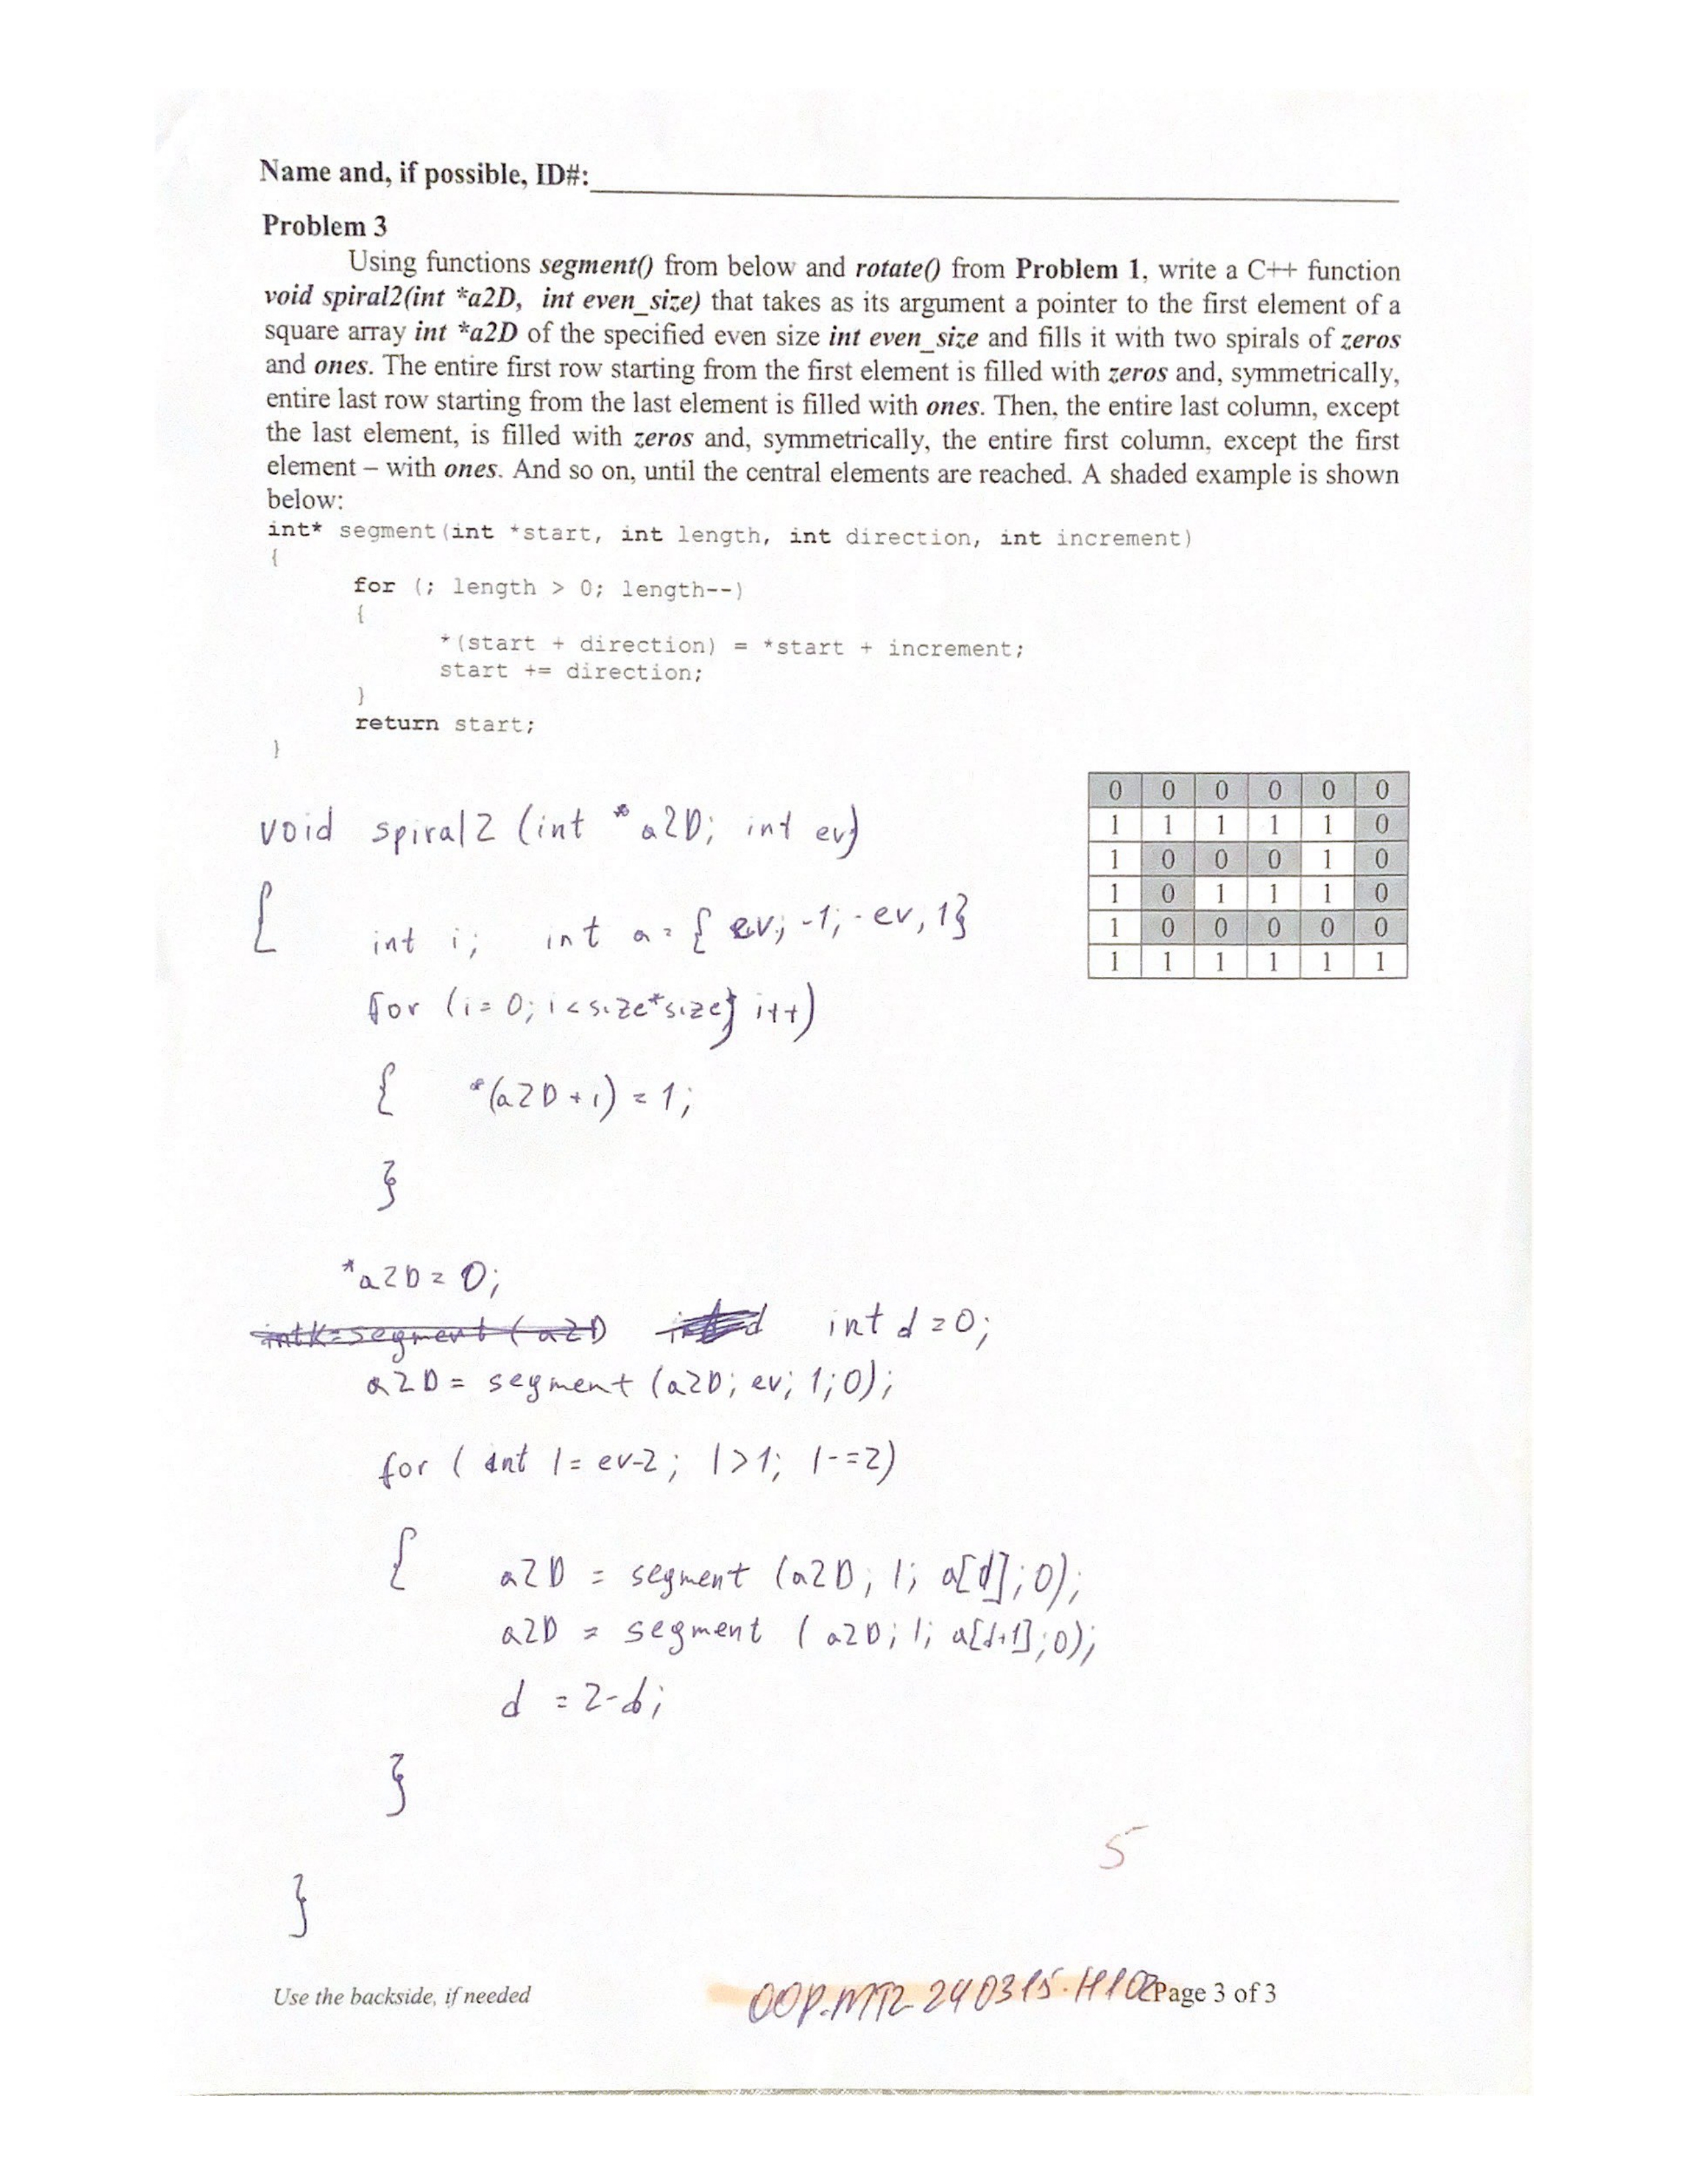 Name and, if possible, ID#:
Problem 3
Using functions segment() from below and rotate() from Problem 1, write a C++ function
void spiral2(int *a2D, int even_size) that takes as its argument a pointer to the first element of a
square array int *a2D of the specified even size int even_size and fills it with two spirals of zeros
and ones. The entire first row starting from the first element is filled with zeros and, symmetrically,
entire last row starting from the last element is filled with ones. Then, the entire last column, except
the last element, is filled with zeros and, symmetrically, the entire first column, except the first
element – with ones. And so on, until the central elements are reached. A shaded example is shown
below:
int* segment(int *start, int length, int direction, int increment)
{
for (; length > 0; length--)
{
*(start + direction) = *start + increment;
start += direction;
}
return start;
}
0 0 0 0 0 0
1 1 1 1 1 0
1 0 0 0 1 0
1 0 1 1 1 0
1 0 0 0 0 0
1 1 1 1 1 1
void spiral2 (int * a2D; int ev)
{ int i; int a = { ev; -1; -ev, 1}
for (i = 0; i < size*size; i++)
{ *(a2D + i) = 1;
}
*a2D = 0;
int d = 0;
a2D = segment (a2D; ev; 1; 0);
for ( int l = ev-2; l > 1; l -= 2)
{ a2D = segment (a2D; l; a[d]; 0);
a2D = segment (a2D; l; a[d+1]; 0);
d = 2-d;
}
5
}
Use the backside, if needed
OOP.MT2.240315.H102
Page 3 of 3